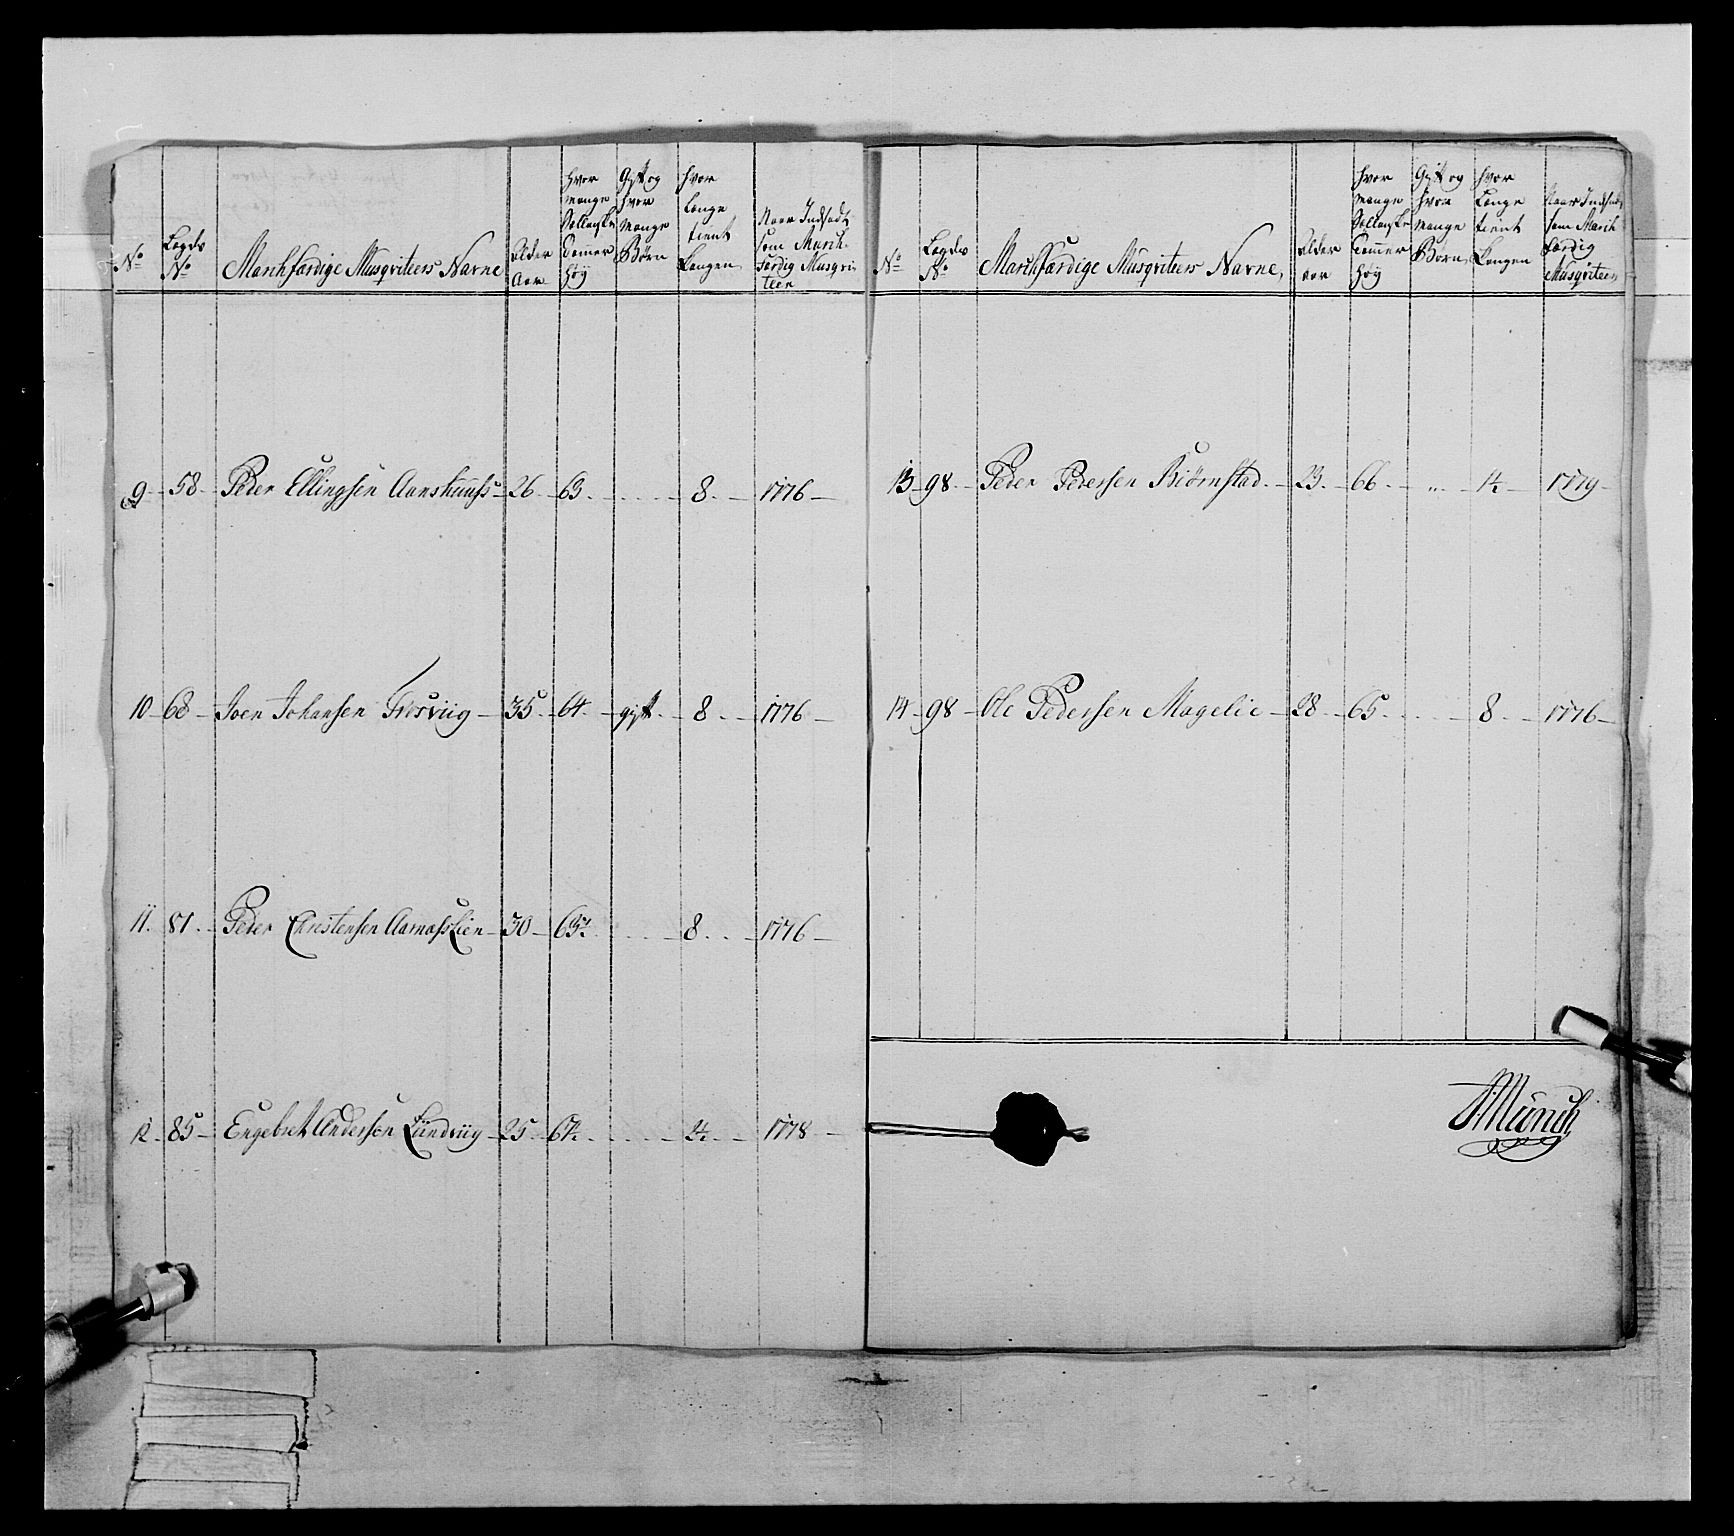 No
Legds No
Marchfærdige Musqviteers Navne
Alder Aar
hvor mange Sællanske Tommer høy
Gift og hvor mange Børn
hvor Længe tient Kongen
Naar Indsadt som March-færdig Musqviteer
9 58 Peder Ellingsen 26 63 8 1776
10 68 Joen Johansen 35 64 gift 8 1776
11 81 Peder Christensen 30 63 8 1776
12 85 Engebret Andersen Lundviig 25 1778
No
Legds No
Marchfærdige Musqviteers Navne
Alder aar
hvor mange Sællanske Tommer høy
Gift og hvor mange Børn
hvor Længe tient Kongen
Naar Indsadt som March færdig Musqviteer
13 98 Peder Pedersen Biørnstad 23 66 „ 1½ 1779
14 98 Ole Pedersen Magelie 28 65 8 1776
Münch